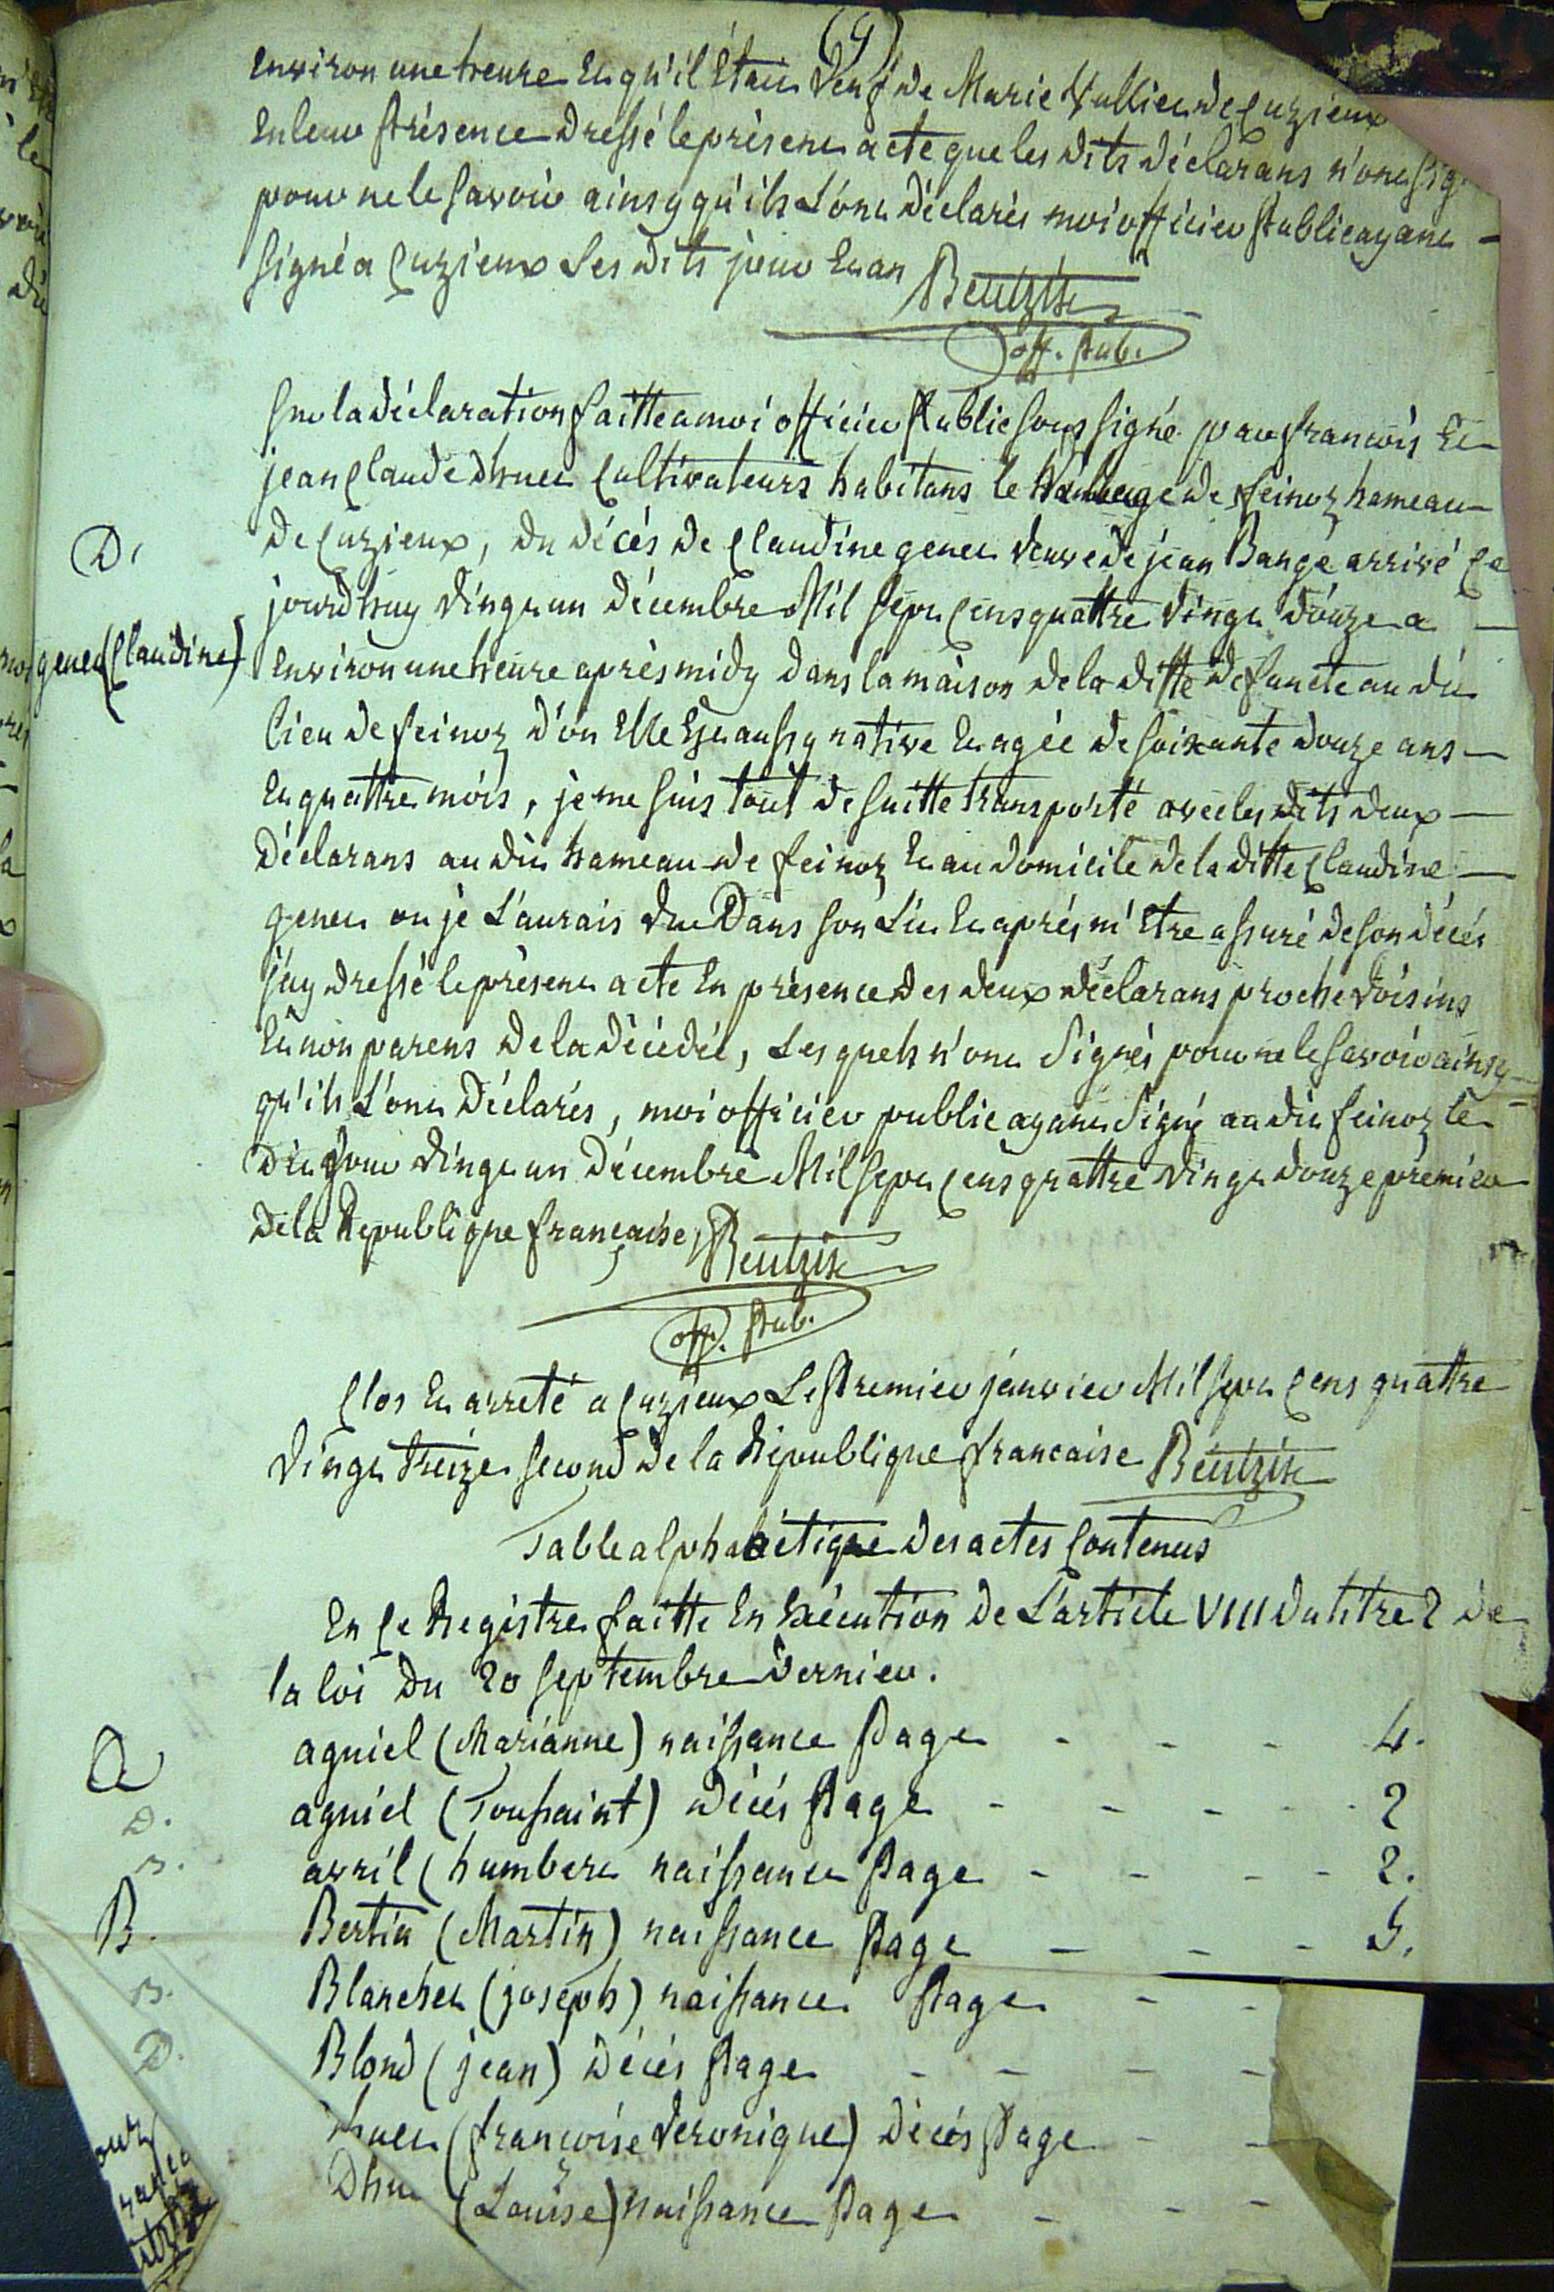 (9)
environ une heure et qu'il était veuf de Marie Vulliet de Cuzieux
en leur présence dressé le présent acte que les dits déclarans n'ont sig
pour ne le savoir ainsy qu'ils L'ont déclarés moi officier public ayant –
signé a Cuzieux Les dits jour et an
off. pub.
Sur la déclaration faitte a moi officier public soussigné par francois et
jean Claude dhuet Cultivateurs habitans le de feinoz hameau
D.
de Cuzieux, du décés de Claudine genet veuve de jean Bangé arrivé Ce
jourdhuy vingt un décembre Mil sept Cens quattre vingt douze a –
genet (Claudine)
environ une heure aprés midy dans la maison de la ditte defuncte au dit
lieu de feinoz d'ou elle est aussy native et agée de soixante douze ans –
et quattre mois, je me suis tout de suitte transporté avec les dits deux –
déclarans au dit hameau de feinoz et au domicile de la ditte Claudine –
genet ou je L'aurais vue Dans son Lit et aprés m'etre assuré de son décés
j'ay dressé le présent acte en présence des deux déclarans proche voisins
et non parens de la décédée, Lesquels n'ont signés pour ne le savoir ainsy
qu'ils L'ont déclarés, moi officier public ayant signé au dit feinoz le
dit jour vingt un décembre Mil sept Cens quattre vingt douze premier
de la République francaise,
off. pub.
Clos et arreté a Cuzieux Le premier janvier Mil sept Cens quattre
vingt treize second de la République francaise
Table alphabétique des actes Contenus
en Ce Registre faitte en exécution de L'article VIII du titre 2 de
la loi du 20 septembre dernier.
A
agniel (Marianne) naissance page - - - 4.
D.
agniel (Toussaint) décés page - - - - 2
N.
avril (humbert naissance page - - - - 2.
B.
Bertin (Martin) naissance page - - - 5.
N.
Blanchet (joseph) naissance page - -
D.
Blond (jean) décés page - - - -
huet (francoise veronique) décés page - -
Dhu (Louise) naissance page - - -